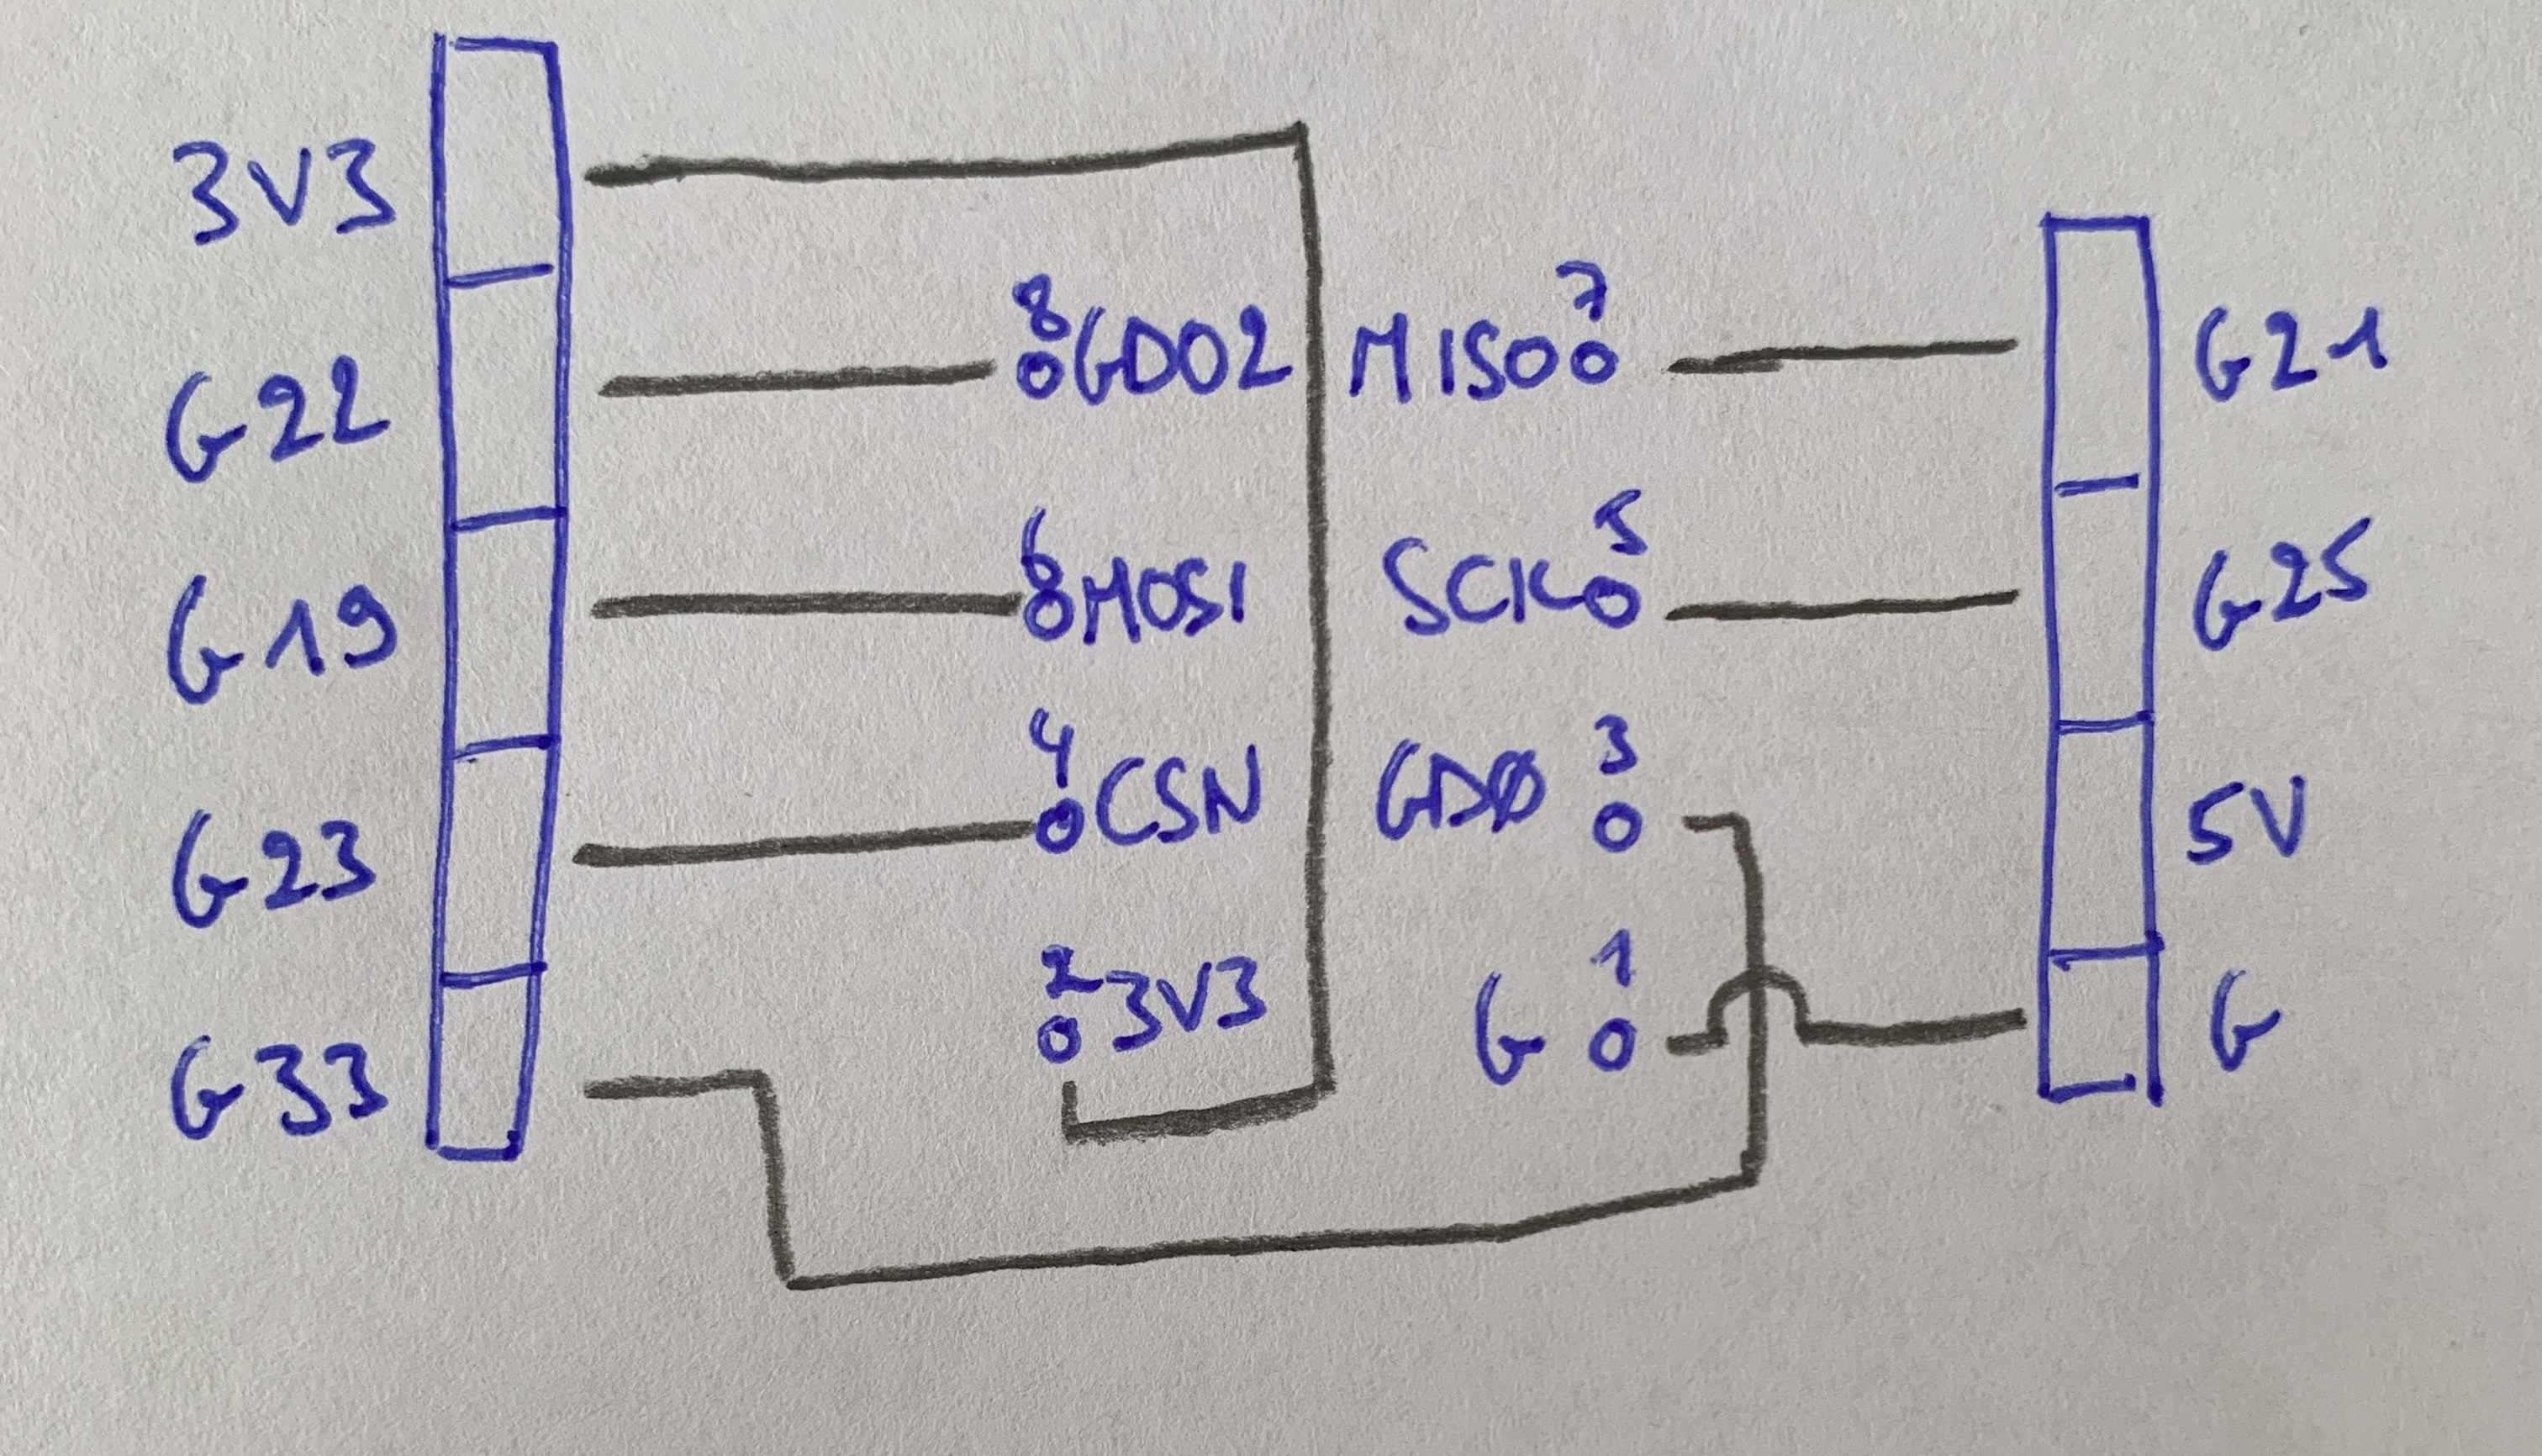 3V3
8 7
G22 GDO2 MISO G21
6 5
G19 MOSI SCK G25
4 3
G23 CSN GDØ 5V
2 1
G33 3V3 G G